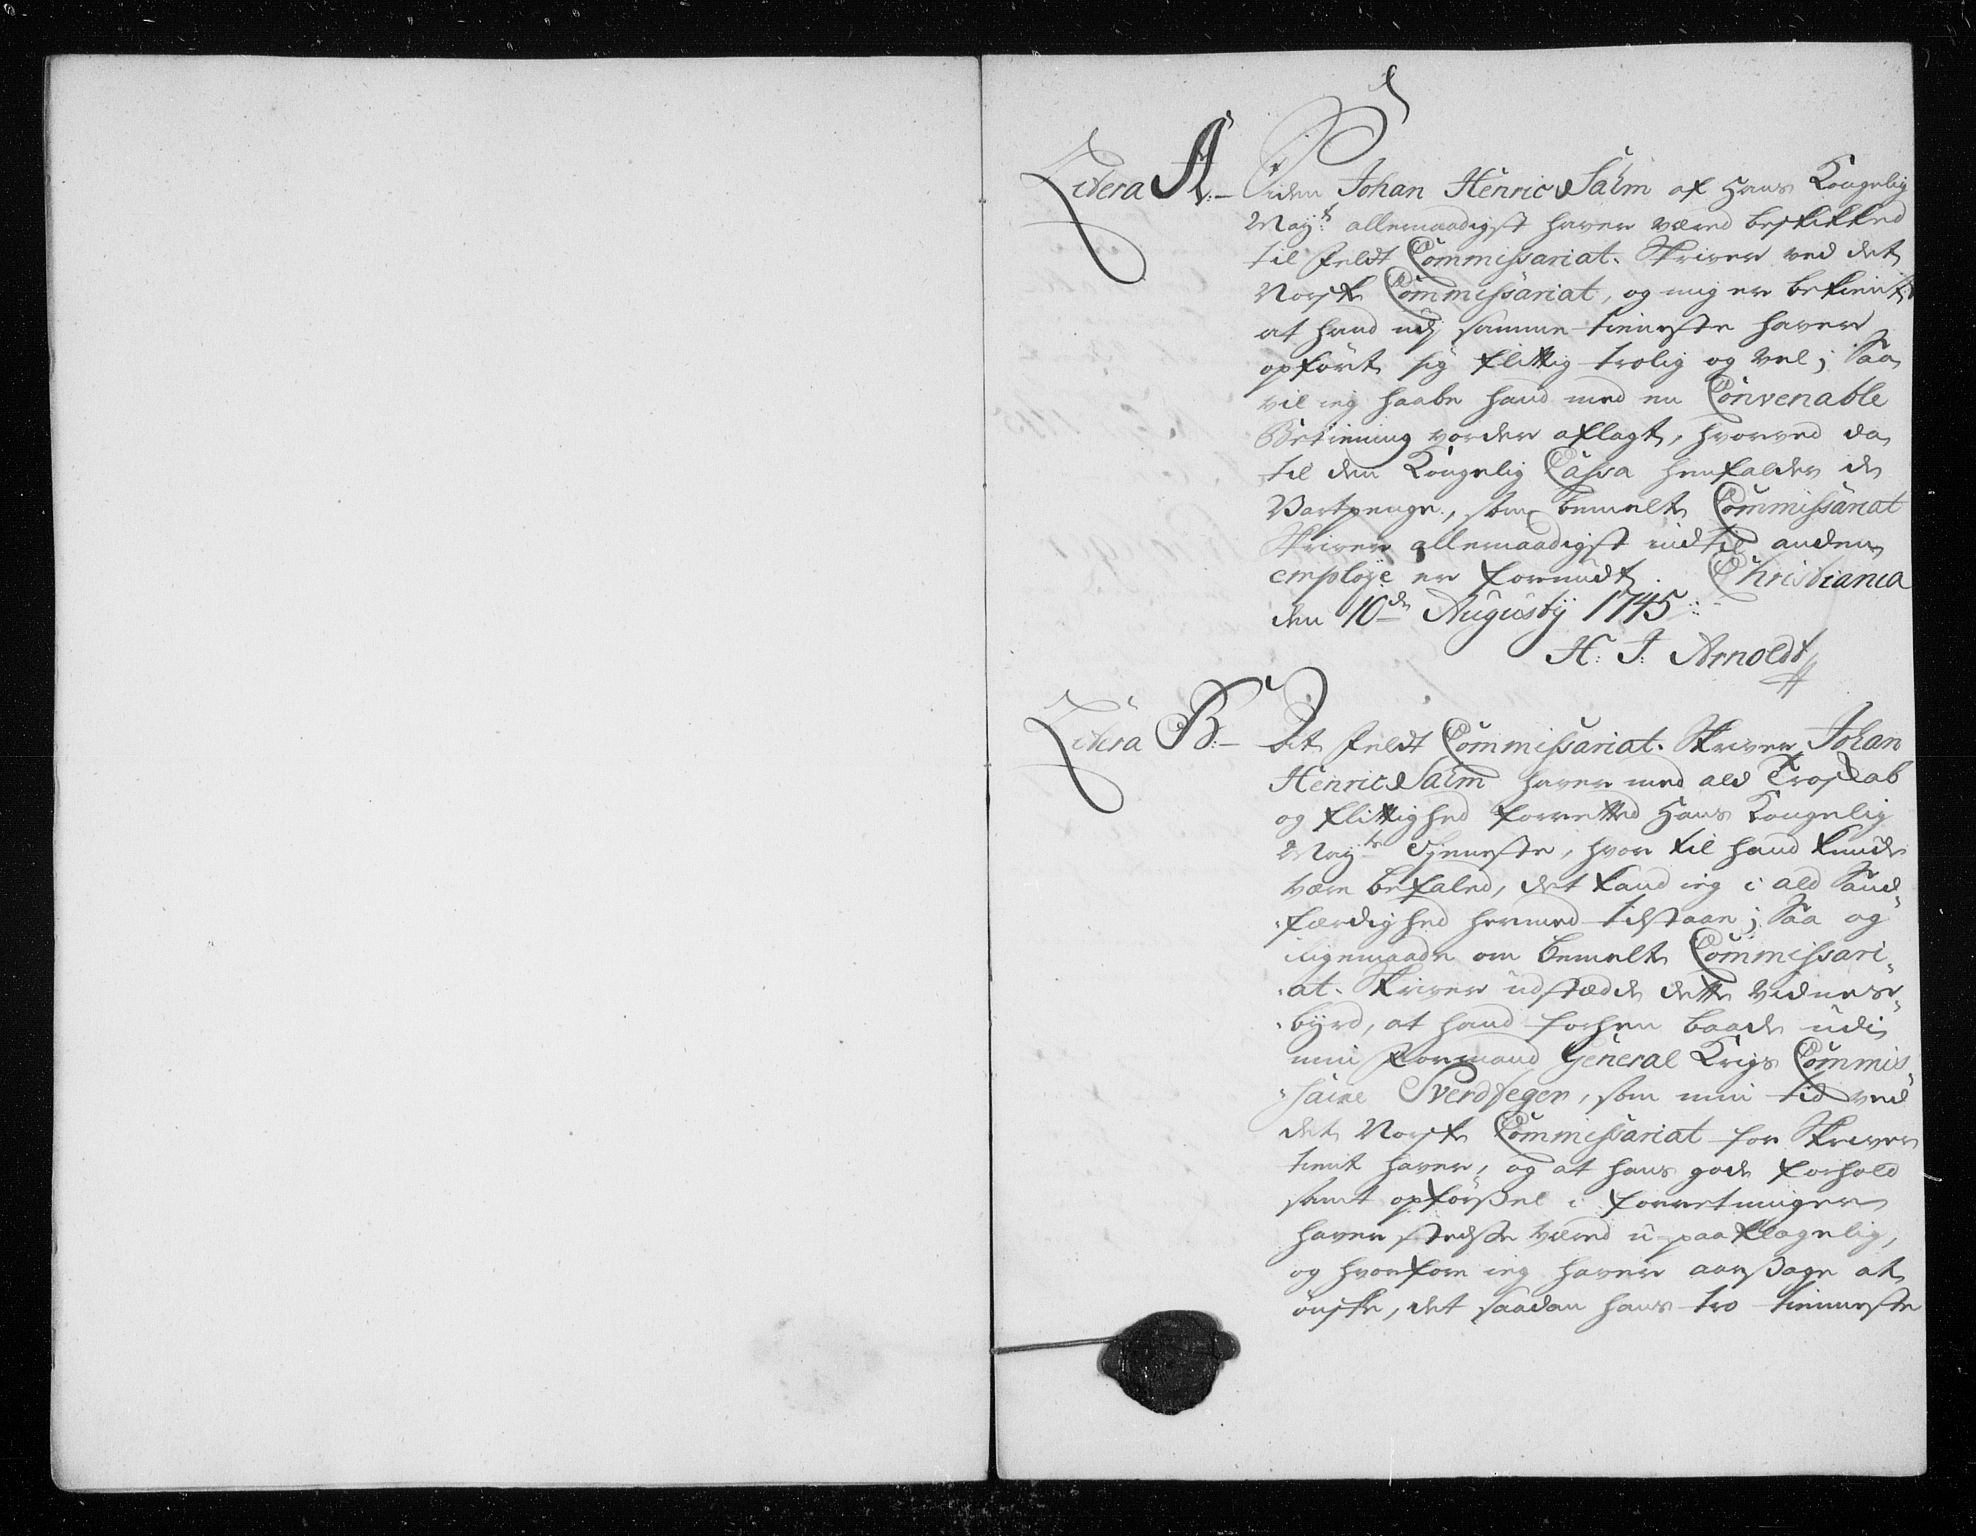 Litera A:- Siden Johan Henric Salm af Hans Kongelig
Mayts allernaadigst haver væred beskikked
til Feldt Commissariat. Skriver ved det
Norske Commissariat, og mig er bekient,
at hand udj samme tieneste haver
opført sig flittig trolig og vel; Saa
vil ieg haabe hand med en Convenable
Betiening vorder aflagt, hvorved da
til den Kongelig Cassa henfalder de
Vartpenge, som bemelte Commissariat
Skriver allernaadigst indtil anden
employe er forundt. Christiania
den 10de Augustij 1745.
H: J: Arnoldt
Litera B:- At Feldt Commissariat. Skriver Johan
Henric Salm haver med ald Troskab
og flittighed forretted Hans Kongelig
Mayts Tjeneste, hvor til hand kunde
være befaled, det kand ieg i ald Sand-
færdighed hermed tilstaae; Saa og
iligemaade om bemelte Commissari-
at. Skriver udstæde dette Vidnes-
byrd, at hand forhen baade udi
min Formand General Krigs Commis-
saire Sverdfeger, som min tid ved
det Norske Commissariat for Skriver
tient haver, og at hans gode forhold
samt opførsel i forretninger
haver stedse været u-paaklagelig,
og hvorfore ieg haver aarsage at
ønske, det saadan hans tro tienneste